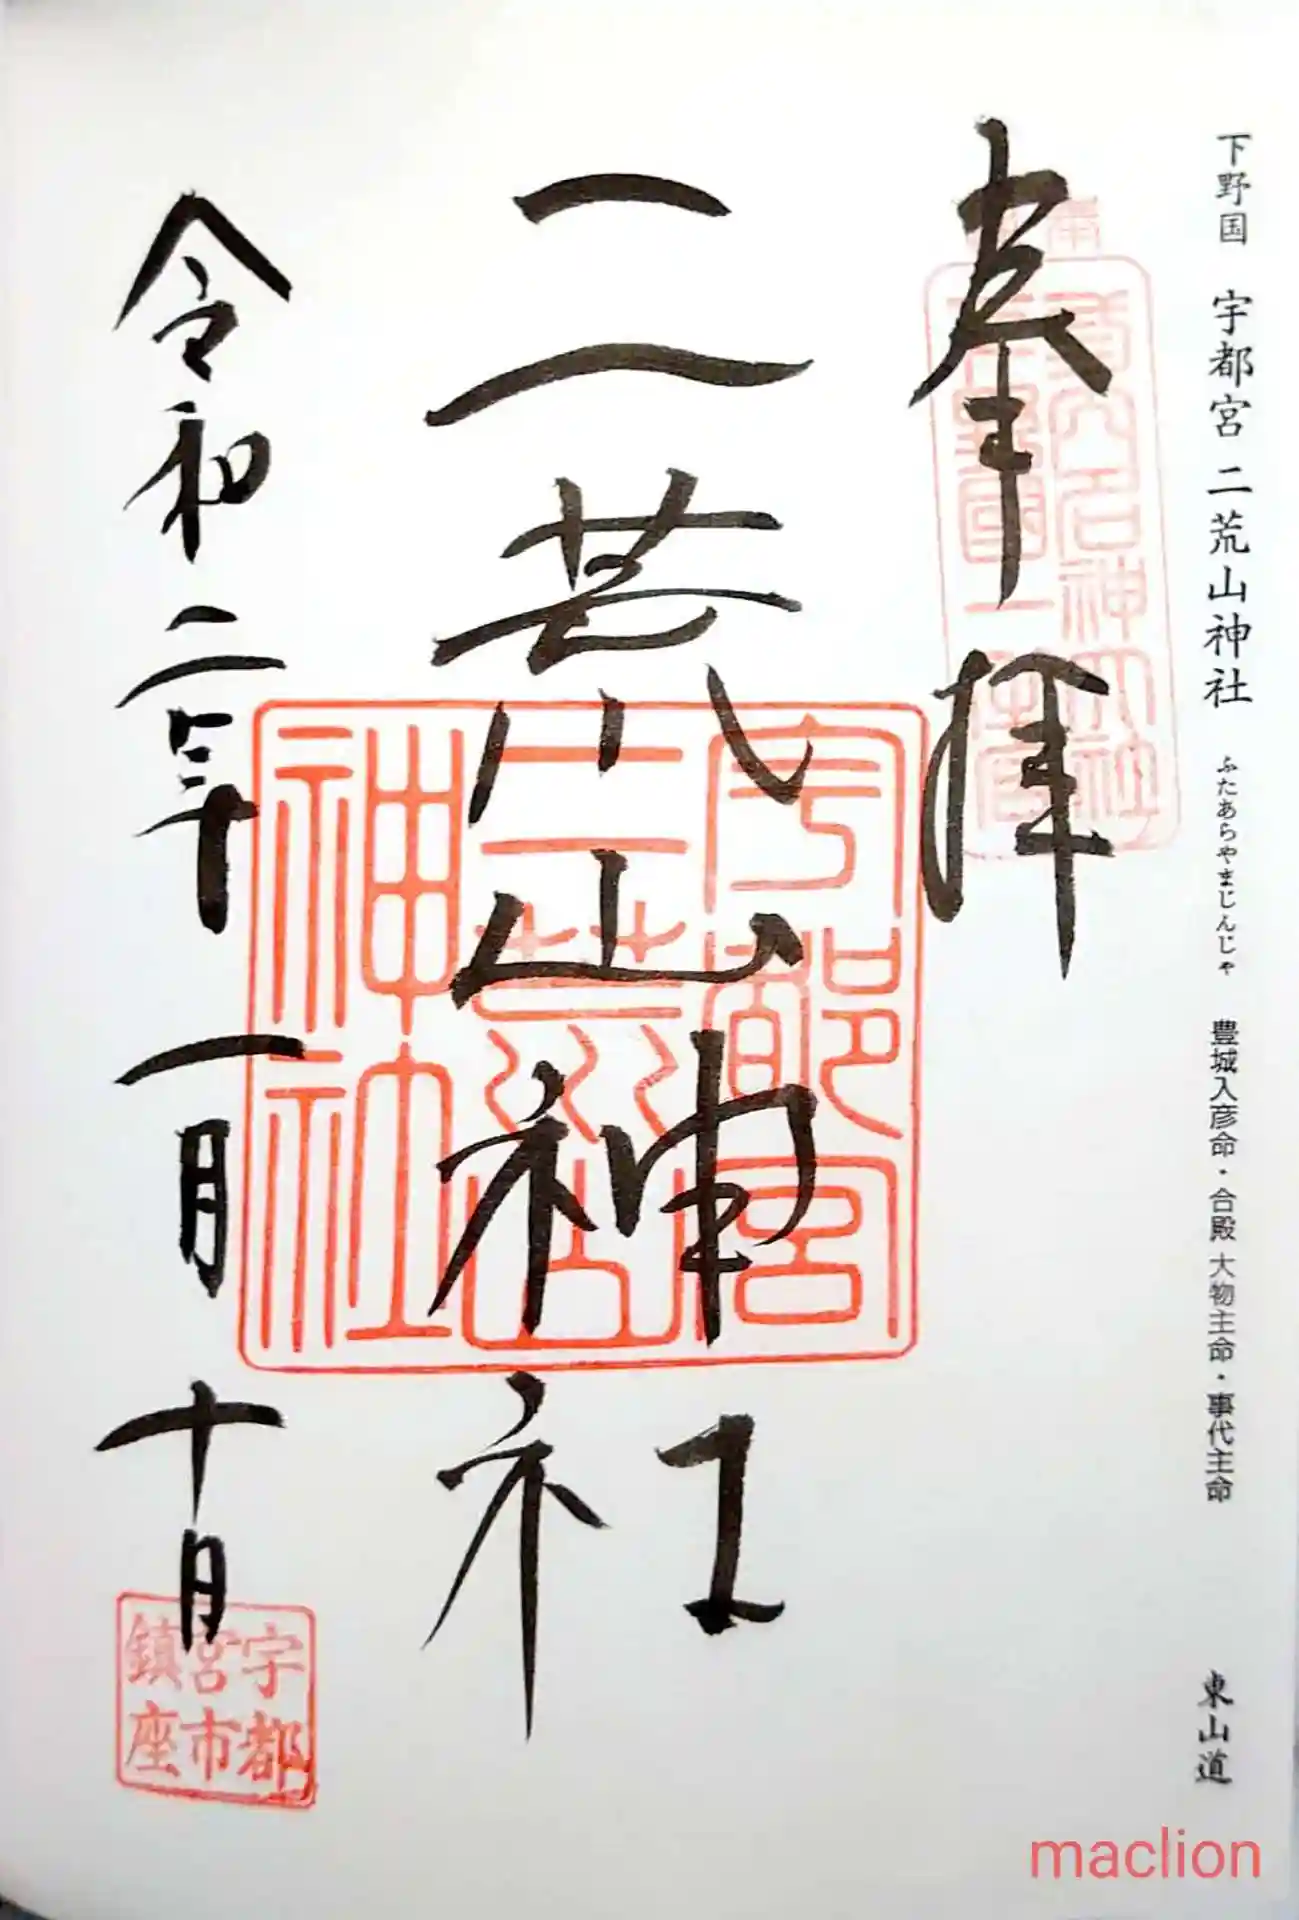 下野国 宇都宮 二荒山神社 ふたあらやまじんじゃ 豊城入彦命・合殿 大物主命・事代主命 東山道
奉拝
二荒山神社
宇都宮
二荒山
神社
令和二年一月十日
宇都
宮市
鎮座
maclion